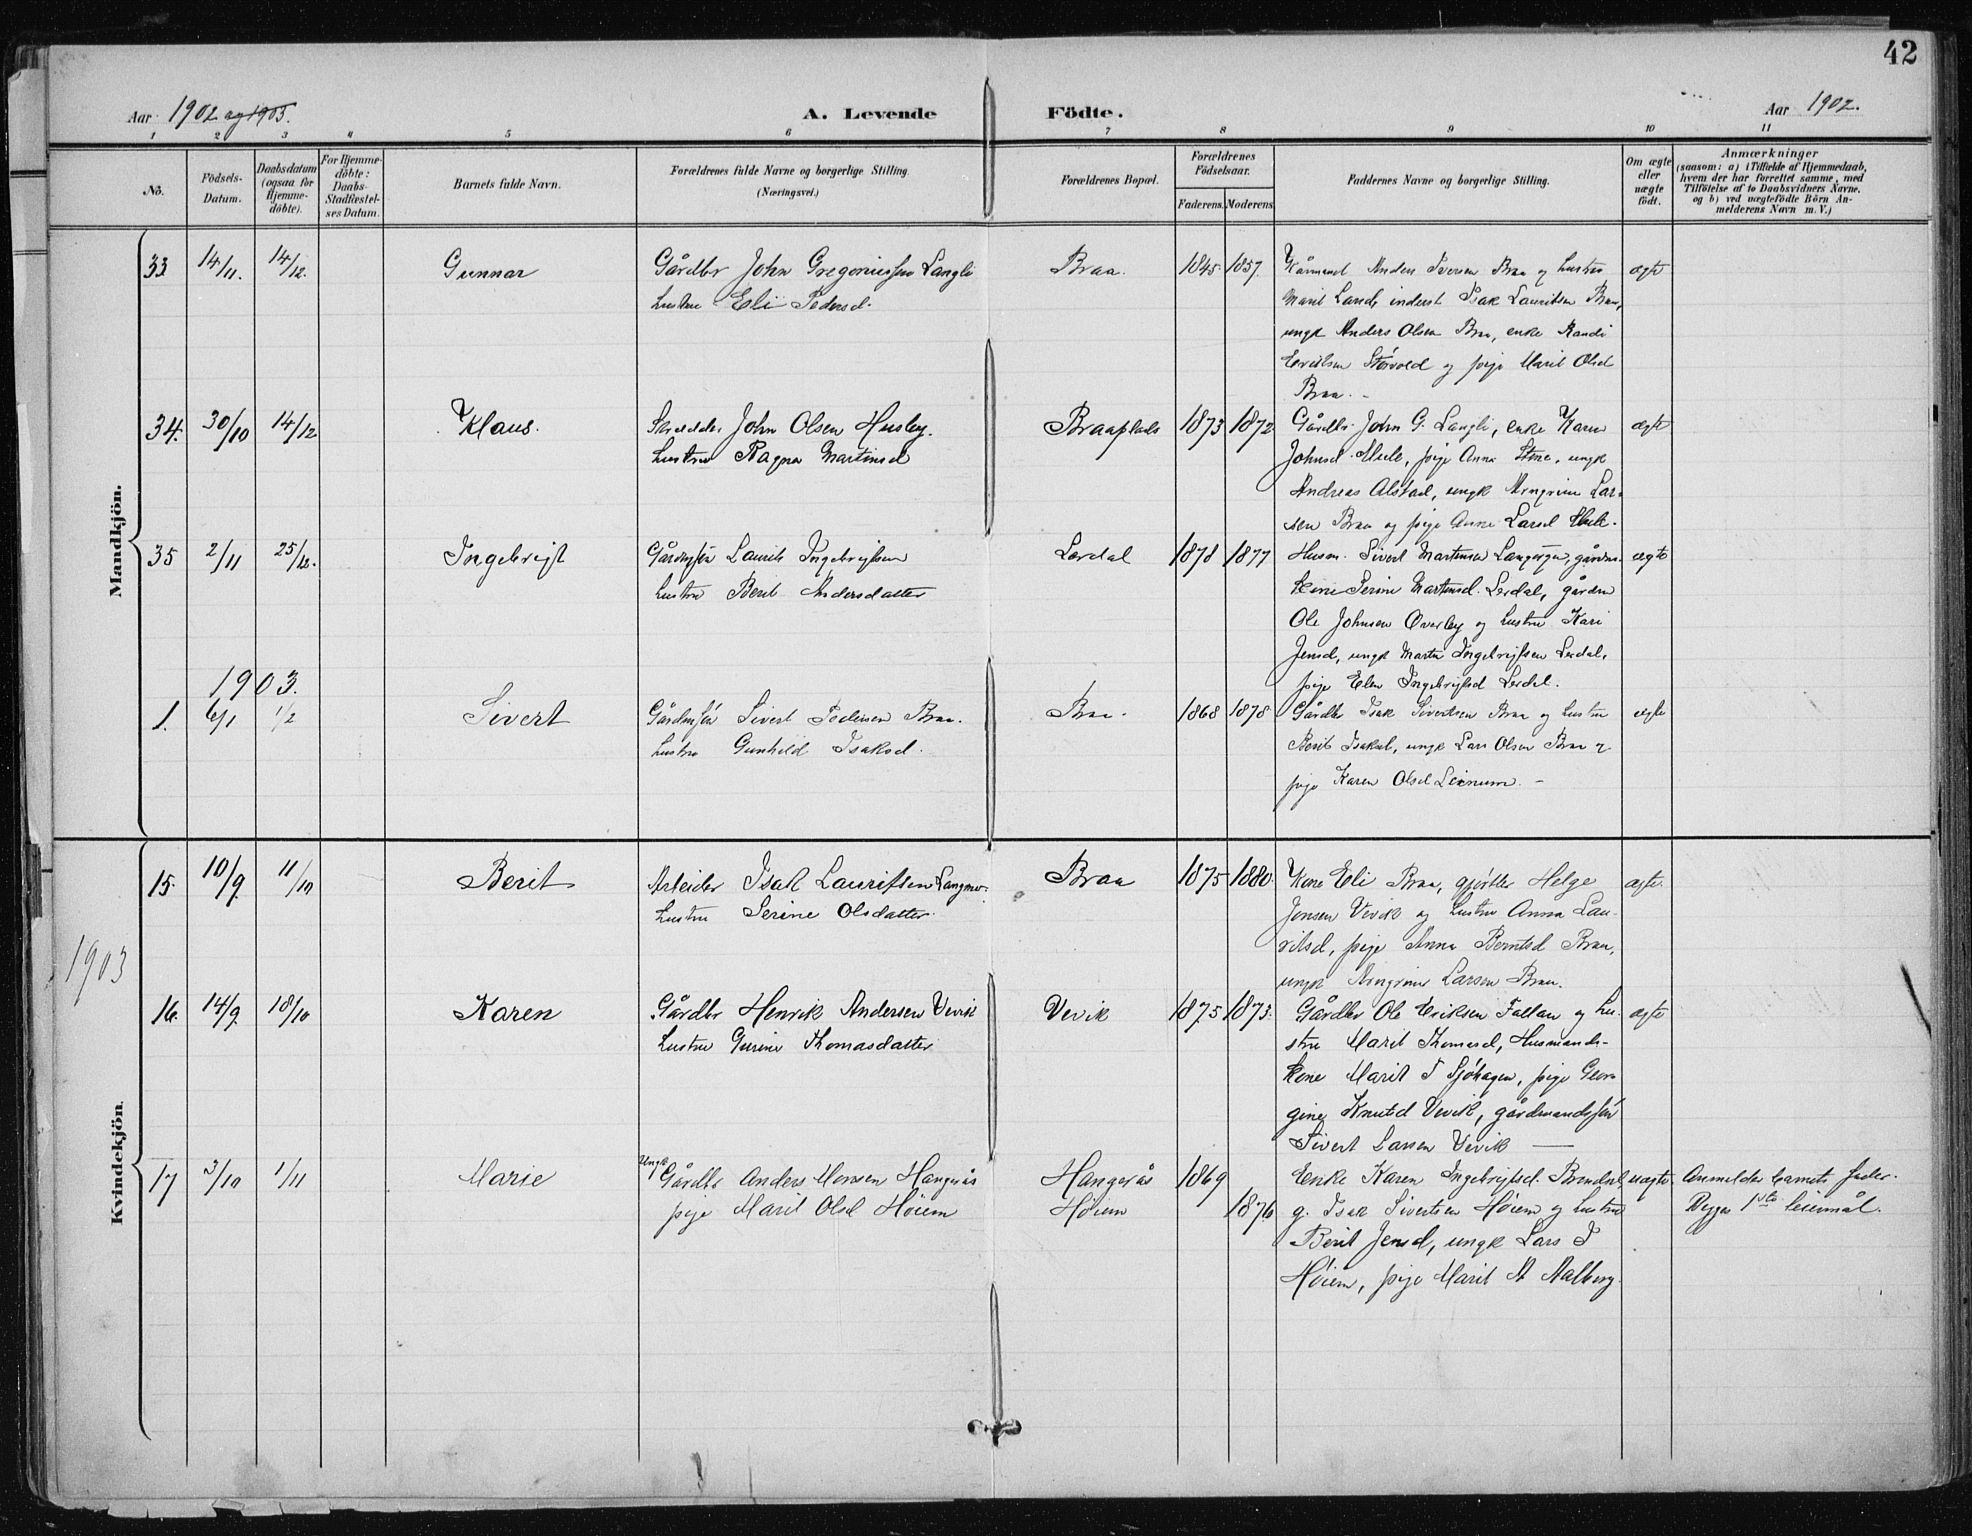 42
Aar 1902 og 1903.
A. Levende Födte.
Aar 1902.
1 2 3 4 5 6 7 8 9 10 11
No.
Födsels-Datum.
Daabsdatum (ogsaa for Hjemme-döbte).
For Hjemme-döbte: Daabs-Stadfæstel-ses Datum.
Barnets fulde Navn.
Forældrenes fulde Navne og borgerlige Stilling. (Næringsvei.)
Forældrenes Bopæl.
Forældrenes Födselsaar.
Faderens. Moderens.
Faddernes Navne og borgerlige Stilling.
Om ægte eller uægte födt.
Anmærkninger
(saasom: a) i Tilfælde af Hjemmedaab,
hvem der har forrettet samme, med
Tilföielse af to Daabsvidners Navne,
og b) ved uægtefödte Börn An-
melderens Navn m. V.)
Mandkjön.
33 14/11. 14/12. Gunnar Gårdbr John Gregoriussen Langli Braa. 1845 1857. Kårmand Anders Iversen Braa og hustru ægte
hustru Eli Pedersd. Marit Larsd, inderst Isak Lauritsen Braa,
ungk Anders Olsen Braa, enke Randi
Størvold og pige Marit Olsd
Braa.
34. 30/10 14/12 Klaus. Skrædder John Olsen Husby. Braaplads 1873 1872 Gårdbr John G. Langli, enke Karen ægte
hustru Ragna Martinsd Johnsd. pige Anna Stene, ungk
Andreas Alstad, ungk Arngrim Lar-
sen Braa og pige Anne Larsd
35 2/11 25/12. Ingebrigt Gårdmsøn Laurits Ingebrigtsen Lerdal 1878 1877 Husm. Sivert Martinsen gårdm- ægte
hustru Berit Andersdatter kone Serine Martinsd. Lerdal, gårdm
Ole Johnsen Overby og hustru Kari
Jensd, ungk Martin Ingebrigtsen Lerdal,
pige Elen Ingebrigtsd Lerdal.
1903.
1. 6/1 1/2 Sivert Gårdmsøn Sivert Pedersen Braa. Braa. 1868 1878 Gårdbr Isak Sivertsen Braa og hustru ægte
hustru Gunhild Isaksd. Berit Isaksd, ungk Lars Olsen Braa og
pige Karen Olsd Leinum. –
Kvindekjön.
1903
15. 10/9. 11/10 Berit Arbeider Isak Lauritsen Langmo. Braa 1875 1880. Kone Eli Braa, gjørtler Helge ægte.
hustru Serine Olsdatter. Jonsen Vevik og hustru Anna Lau-
ritsd, pige Anna Berntsd Braa,
ungk Arngrim Larsen Braa.
16. 14/9. 18/10 Karen Gårdbr Henrik Andersen Vevik Vevik 1875 1873. Gårdbr Ole Eriksen Fallan og hu- ægte
hustru Gurine Thomasdatter stru Marit Thomasd, Husmands-
kone Marit T Sjøhagen, pige Geor-
gine Knutsd Vevik, gårdmandssøn
Sivert Larsen Vevik —
17 3/10 1/11 Marie Ungk Gårdbr Anders Monsen Hangerås Hangerås 1869 Enke Karen Ingebrigtsd. uægte. Anmelder barnets fader.
pige Marit Olsd Høiem Høiem 1876 g. Isak Sivertsen Høiem og hustru Begges 1ste leiermål.
Berit Jensd, ungk Lars I
Høiem, pige Marit A Aalberg.